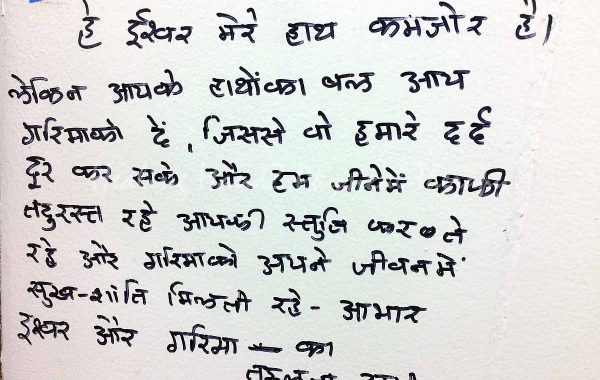 हे ईश्वर मेरे हाथ कमजोर है।
लेकिन आपके हाथोंका बल आप
गरिमाको दें, जिससे वो हमारे दर्द
दूर कर सके और हम जीनेमें काफी
तंदुरस्त रहे आपकी स्तुति कर ते
रहे और गरिमाको अपने जीवनमें
सुख-शांति मिलती रहे - आभार
ईश्वर और गरिमा - का